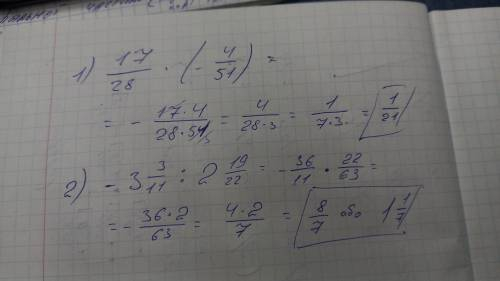 1) 17/28 · (- 4/51) =
= - 17·4/28·51/3 = 4/28·3 = 1/7·3 = 1/21
2) - 3 3/11 : 2 19/22 = - 36/11 · 22/63 =
= - 36·2/63 = 4·2/7 = 8/7 або 1 1/7